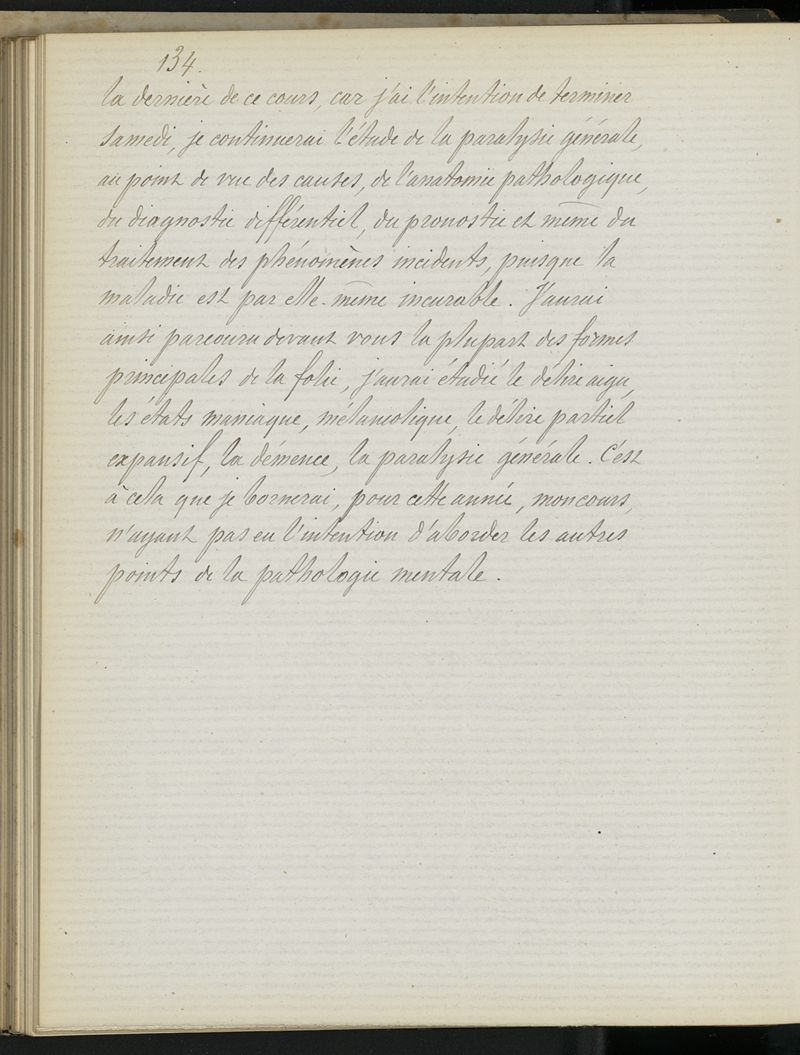 134.
la dernière de ce cours, car j'ai l'intention de terminer
samedi, je continuerai l'étude de la paralysie générale,
au point de vue des causes, de l'anatomie pathologique,
du diagnostic différentiel, du pronostic et même du
traitement des phénomènes incidents, puisque la
maladie est par elle-même incurable. J'aurai
ainsi parcouru devant vous la plupart des formes
principales de la folie, j'aurai étudié le délire aigu,
les états maniaque, mélancolique, le délire partiel
expansif, la démence, la paralysie générale. C'est
à cela que je bornerai, pour cette année, mon cours,
n'ayant pas eu l'intention d'aborder les autres
points de la pathologie mentale.